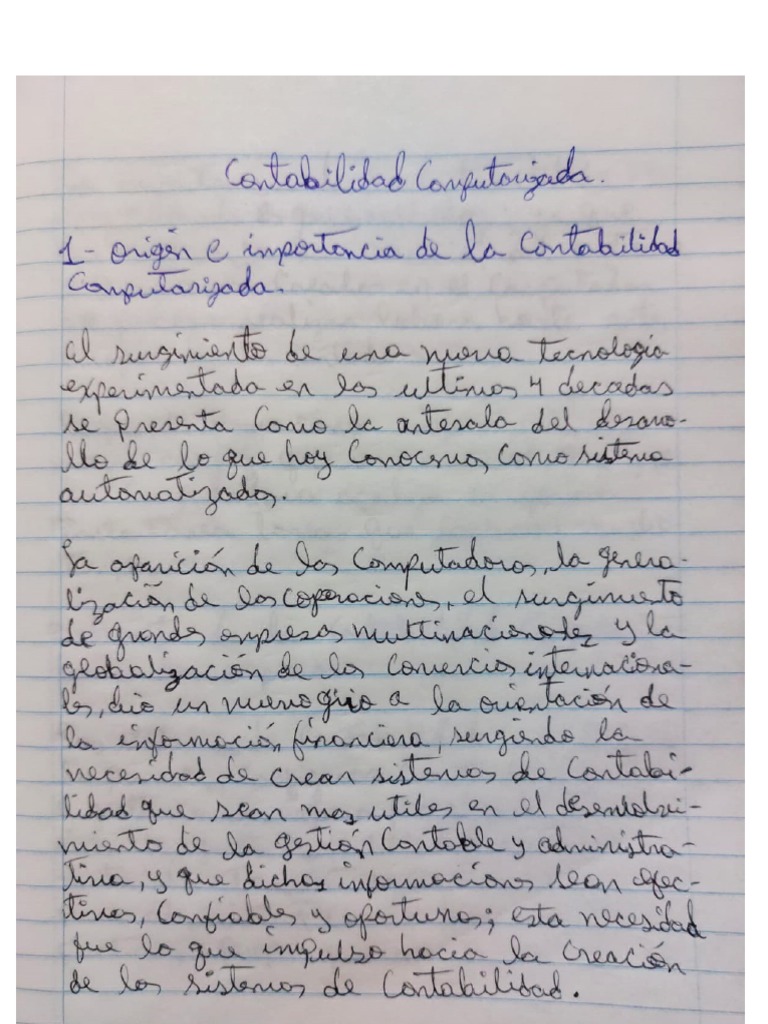 Contabilidad Computarizada.
1- Origén e importancia de la Contabilidad
Computarizada.
El surgimiento de una nueva tecnología
experimentada en los ultimos 4 decadas
se presenta como la antesala del desarro-
llo de lo que hoy conocemos como sistema
automatizados.
La aparición de las computadoras, la genera-
lización de las coperaciones, el surgimiento
de grandes empresas multinacionales y la
globalización de los comercios internaciona-
les, dio un nuevo giro a la orientación de
la información financiera, surgiendo la
necesidad de crear sistemas de Contabi-
lidad que sean mas utiles en el desenvolvi-
miento de la gestión contable y administra-
tiva, y que dichas informaciones sean efec-
tivas, confiables y oportunas; esta necesidad
fue lo que impulso hacia la creación
de los sistemas de Contabilidad.